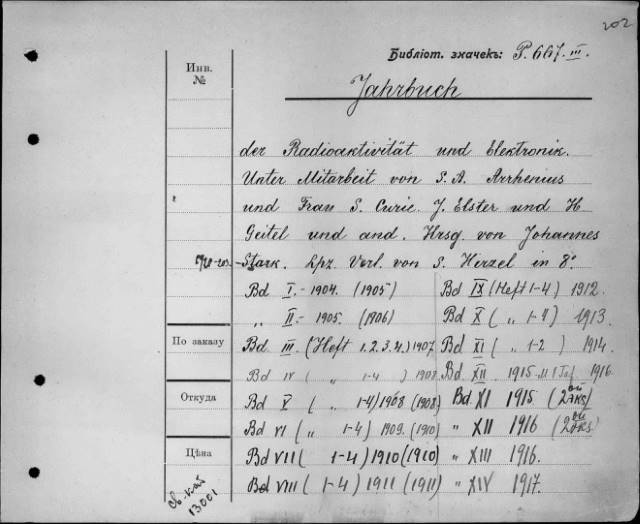 202
Библіот. значекъ: P. 667. III.
Инв.
№
Jahrbuch
der Radioaktivität und Elektronik.
Unter Mitarbeit von S. A. Arrhenius
und Frau S. Curie J. Elster und H
Geitel und and. Hrsg. von Johannes
Stark. Lpz. Verl. von S. Hirzel in 8°
Bd I.- 1904. (1905) Bd IX (Heft 1-4) 1912.
„ II.- 1905. (1906) Bd X ( „ 1-4) 1913.
По заказу
Bd III (Heft 1.2.3.4.) 1907. Bd XI ( „ 1-2 ) 1914.
Bd IV ( „ 1-4 ) 1908. Bd. XII 1915 1916.
Откуда
Bd V ( „ 1-4) 1908 (1908) Bd. XI 1915 (2ой экз)
Bd VI ( „ 1-4) 1909. (1910) „ XII 1916 (2ой экз)
Цѣна
Bd VII ( 1-4) 1910 (1910) „ XIII 1916.
Bd VIII ( 1-4) 1911 (1911) „ XIV 1917.
13001